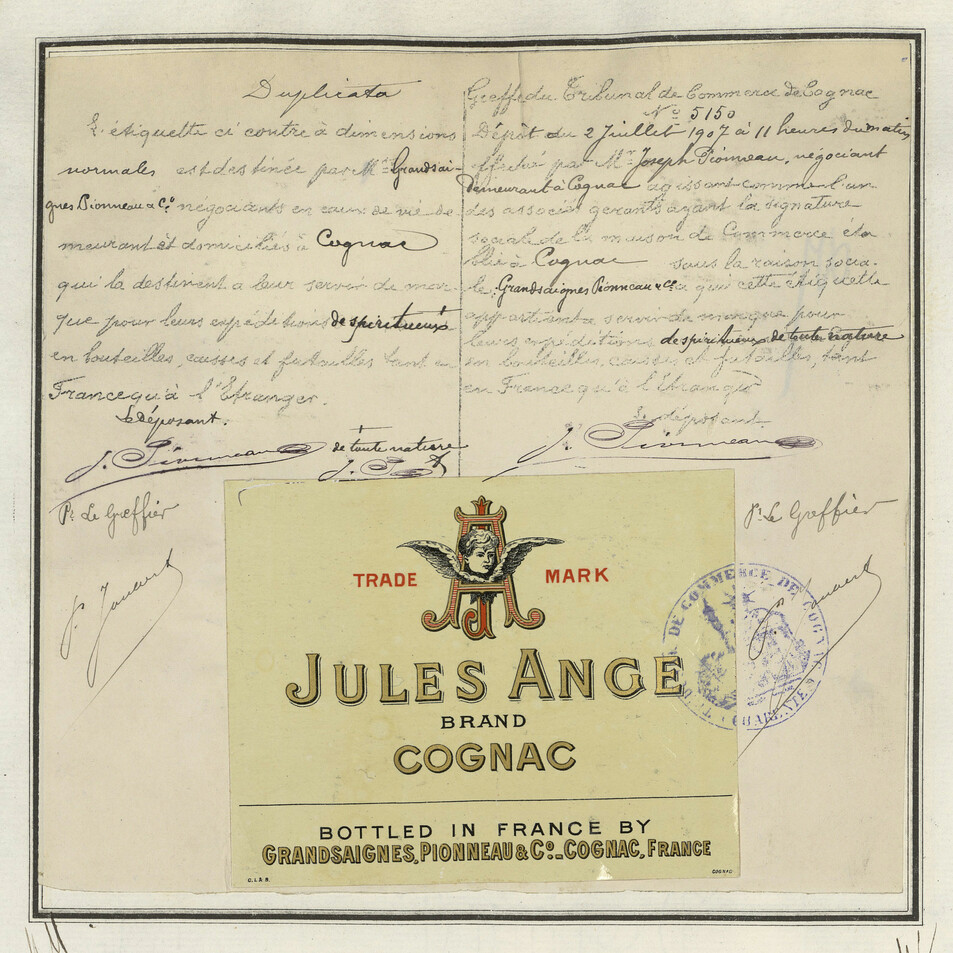 Duplicata
L'étiquette ci contre à dimensions
normales est destinée par Mrs Grandsai-
gnes Pionneau & Co négociants en eaux de vie de
meurant et domiciliés à Cognac
qui la destinent a leur servir de mar-
que pour leurs expéditions de spiritueux
en bouteilles, caisses et futailles tant en
France qu'à l'Etranger.
Le déposant.
J. Pionneau
de toute nature
Pr Le Greffier
Greffe du Tribunal de Commerce de Cognac
No 5150
Dépôt du 2 Juillet 1907 à 11 heures du matin
effectué par Mr Joseph Pionneau, négociant
demeurant à Cognac agissant comme l'un
des associés gérants ayant la signature
sociale de la maison de Commerce éta
blie à Cognac sous la raison socia-
le Grandsaignes Pionneau & Co a qui cette étiquette
appartient a servir de marque pour
leurs expéditions de spiritueux de toute nature
en bouteilles, caisses et futailles, tant
en France qu'à l'Etranger
Le déposant.
J. Pionneau
Pr Le Greffier
TRADE MARK
JULES ANGE
BRAND
COGNAC
BOTTLED IN FRANCE BY
GRANDSAIGNES, PIONNEAU & Co_COGNAC, FRANCE
COGNAC
DE COMMERCE DE COGNAC
CHARENTE